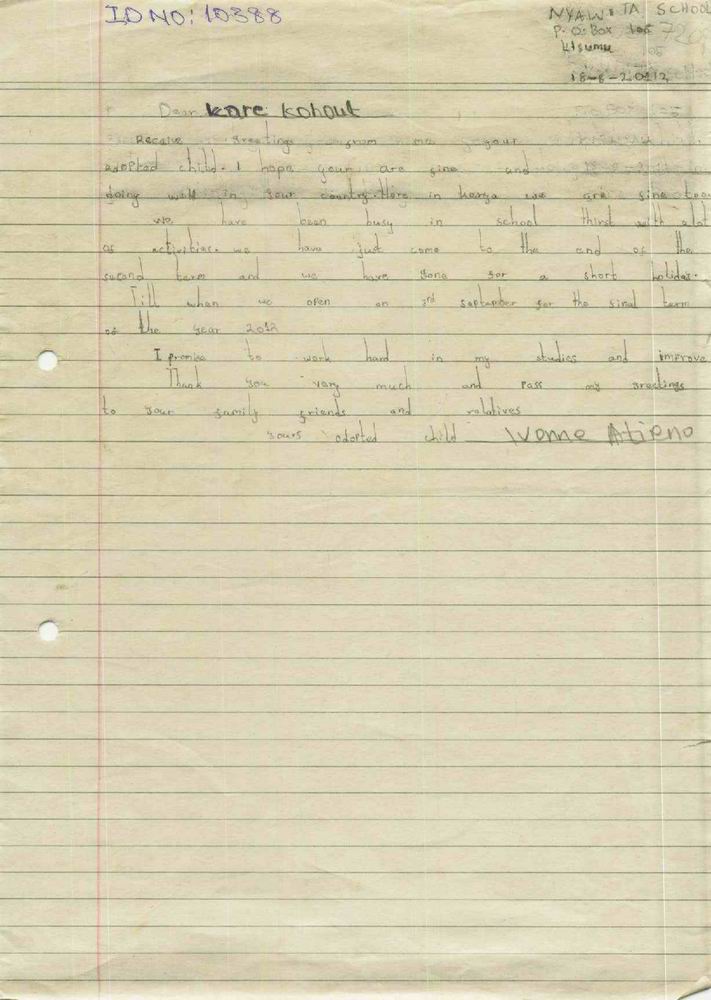 ID NO: 10388
NYAW TA SCHOOL
P. O. Box
Kisumu
18-8-2012
Dear kare kohout
Receive greetings from me your
adopted child. I hope your are fine and
doing well in your country. Here in kenya we are fine too
we have been busy in school thirst with alot
of activities. we have just come to the end of the
second term and we have gone for a short holiday.
Till when we open on 3rd september for the final term
of the year 2012
I promise to work hard in my studies and improve
Thank you very much and pass my greetings
to your family friends and relatives
yours adopted child Ivonne Atieno